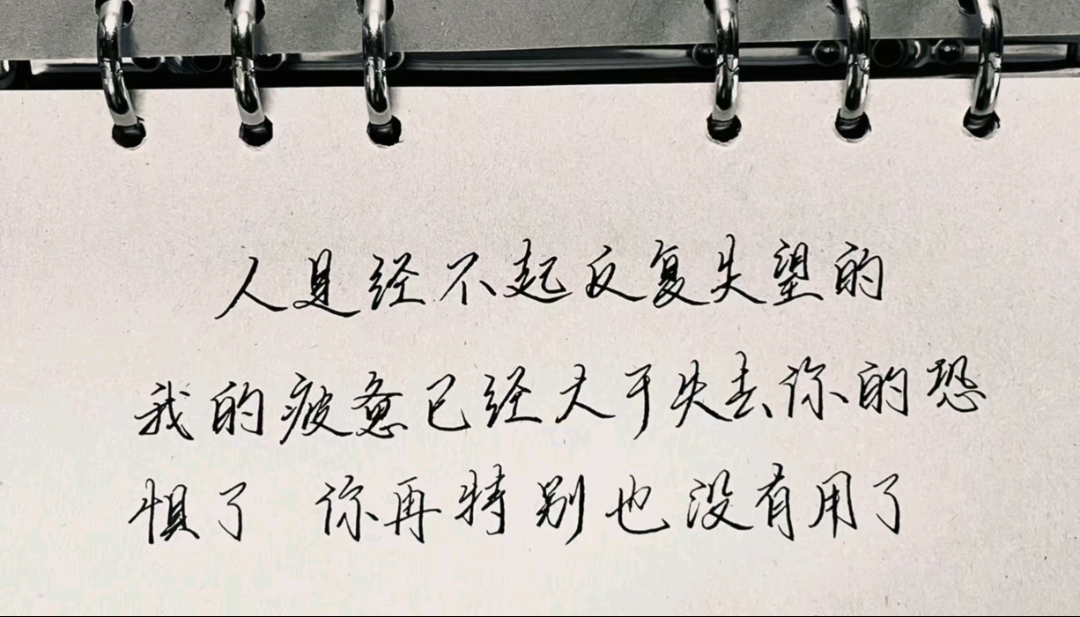 人是经不起反复失望的
我的疲惫已经大于失去你的恐
惧了 你再特别也没有用了